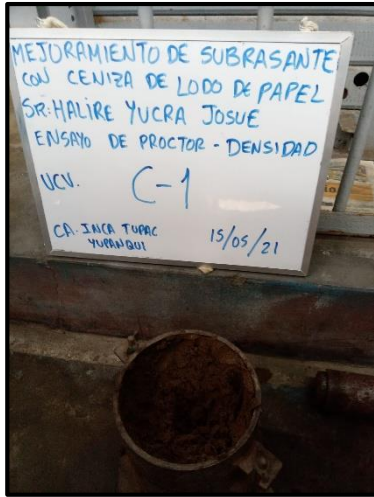 MEJORAMIENTO DE SUBRASANTE
CON CENIZA DE LODO DE PAPEL
SR: HALIRE YUCRA JOSUE
ENSAYO DE PROCTOR - DENSIDAD
UCV. C-1
CA. INCA TUPAC
YUPANQUI 15/05/21